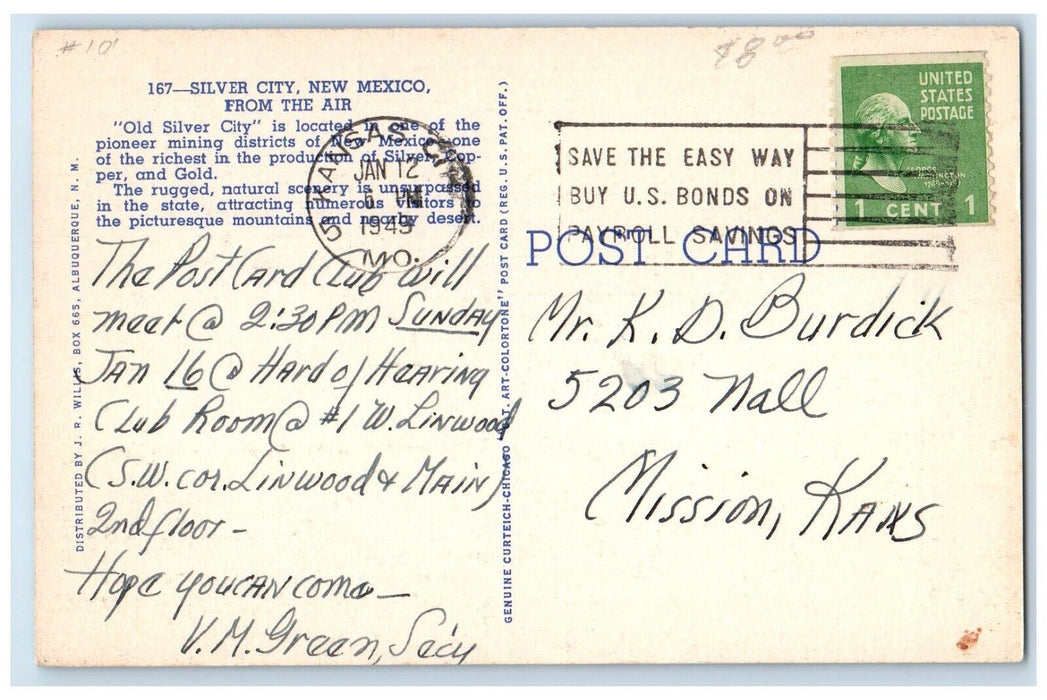 #101
167—SILVER CITY, NEW MEXICO,
FROM THE AIR
"Old Silver City" is located in one of the
pioneer mining districts of New Mexico—one
of the richest in the production of Silver, Cop-
per, and Gold.
The rugged, natural scenery is unsurpassed
in the state, attracting numerous visitors to
the picturesque mountains and nearby desert.
KANSAS
JAN 12
PM
MO.
The Post Card Club will
meet @ 2:30 PM Sunday
Jan 16 @ Hard of Hearing
Club Room @ #1 W. Linwood
(S.W. cor. Linwood & Main)
2nd floor –
Hope you can come –
V.M. Green, Sec'y
DISTRIBUTED BY J. R. WILLIS, BOX 665, ALBUQUERQUE, N. M.
GENUINE CURTEICH-CHICAGO "C.T. ART-COLORTONE" POST CARD (REG. U.S. PAT. OFF.)
SAVE THE EASY WAY
BUY U.S. BONDS ON
PAYROLL SAVINGS
UNITED
STATES
POSTAGE
GEORGE
WASHINGTON
1 CENT 1
POST CARD
Mr. K. D. Burdick
5203 Nall
Mission, Kans